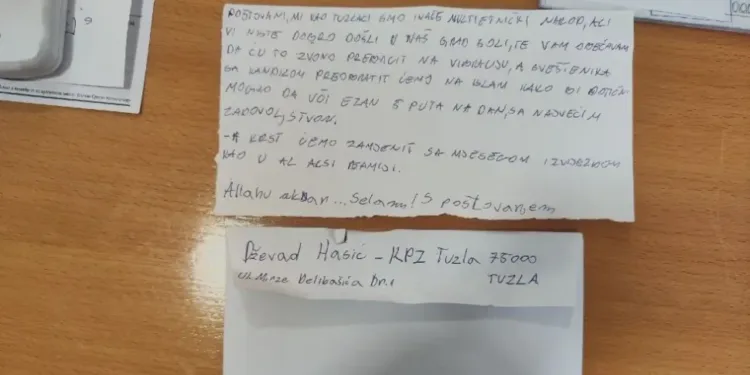 POŠTOVANI, MI KAO TUZLACI SMO INAČE MULTIETNIČKI NAROD, ALI
VI NISTE DOBRO DOŠLI U NAŠ GRAD SOLI, TE VAM OBEĆAVAM
DA ĆU TO ZVONO PREBACIT NA VIKALICU, A SVEŠTENIKA
SA KANDILOM PREOBRATIT ĆEMO NA ISLAM KAKO BI
MOGAO DA UČI EZAN 5 PUTA NA DAN, SA NAJVEĆIM
ZADOVOLJSTVOM.
-A KRST ĆEMO ZAMJENIT SA MJESECOM I ZVJEZDOM
KAO U AL AKSI DŽAMIJI.
Allahu akbar... Selam! S poštovanjem
Dževad Hasić - KPZ Tuzla 75000
Delibašića Br.1 TUZLA